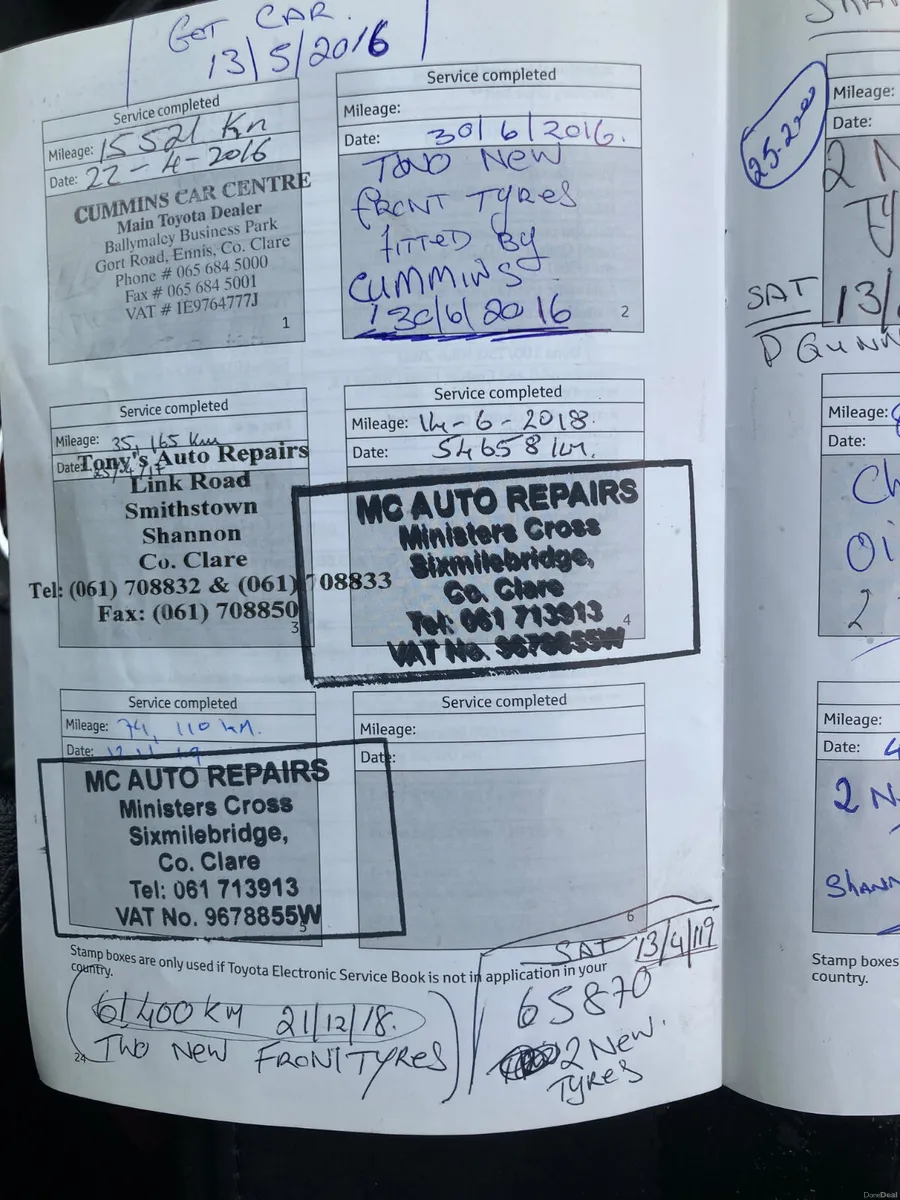 GOT CAR.
13/5/2016
Service completed
Mileage: 15521 Km
Date: 22-4-2016
CUMMINS CAR CENTRE
Main Toyota Dealer
Ballymaley Business Park
Gort Road, Ennis, Co. Clare
Phone # 065 684 5000
Fax # 065 684 5001
VAT # IE9764777J
1
Service completed
Mileage:
Date: 30/6/2016.
TWO NEW
FRONT TYRES
FITTED BY
CUMMINS
30/6/2016
2
Service completed
Mileage: 35,165 Km
Date:
Tony's Auto Repairs
Link Road
Smithstown
Shannon
Co. Clare
Tel: (061) 708832 & (061) 708833
Fax: (061) 708850
3
Service completed
Mileage: 14-6-2018.
Date: 54658 km.
MC AUTO REPAIRS
Ministers Cross
Sixmilebridge,
Co. Clare
Tel: 061 713913
VAT No. 9678855W
4
Service completed
Mileage: 74,110 km.
Date:
MC AUTO REPAIRS
Ministers Cross
Sixmilebridge,
Co. Clare
Tel: 061 713913
VAT No. 9678855W
5
Service completed
Mileage:
Date:
6
Stamp boxes are only used if Toyota Electronic Service Book is not in application in your
country.
61,400 KM 21/12/18.
TWO NEW FRONT TYRES
24
SAT 13/4/119
65870
2 NEW
TYRES
Mileage:
Date:
2
SAT 13/
Mileage:
Date:
Oi
2
Mileage:
Date: 4
2 N
Stamp boxes
country.
DoneDeal